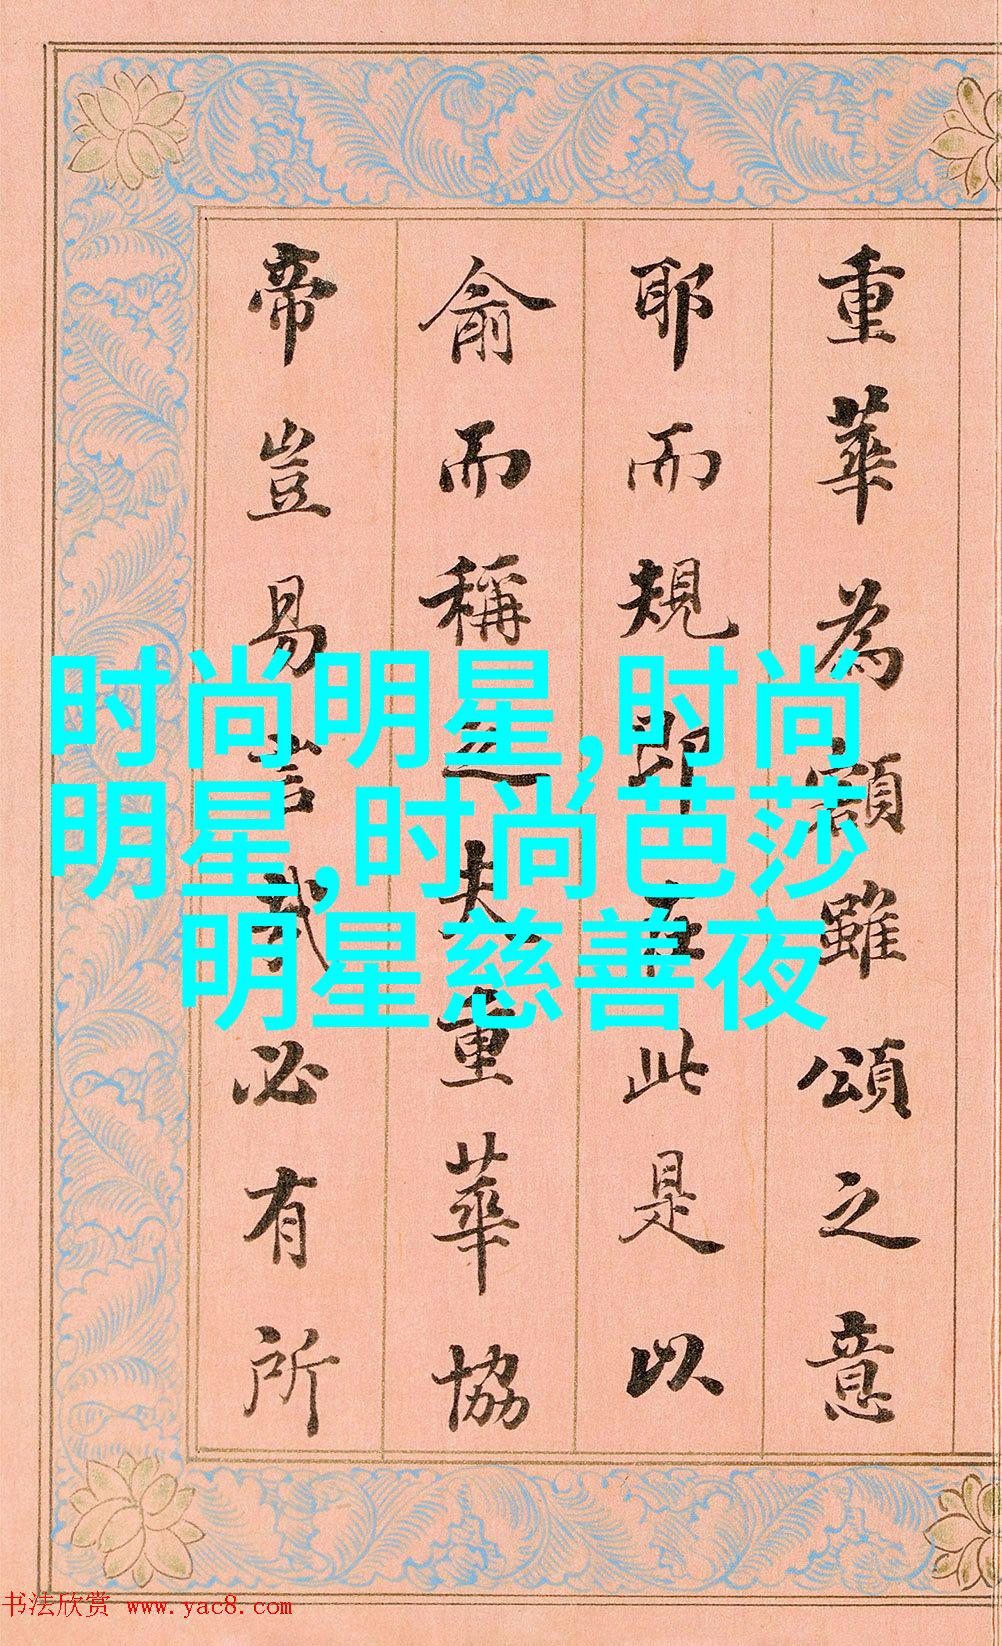 重華為額雖頌之意
耶而規即在此是以
俞而稱之夫重華協
帝豈易言哉必有所
时尚明星,时尚
明星,时尚芭莎
明星慈善夜
书法欣赏 www.yac8.com